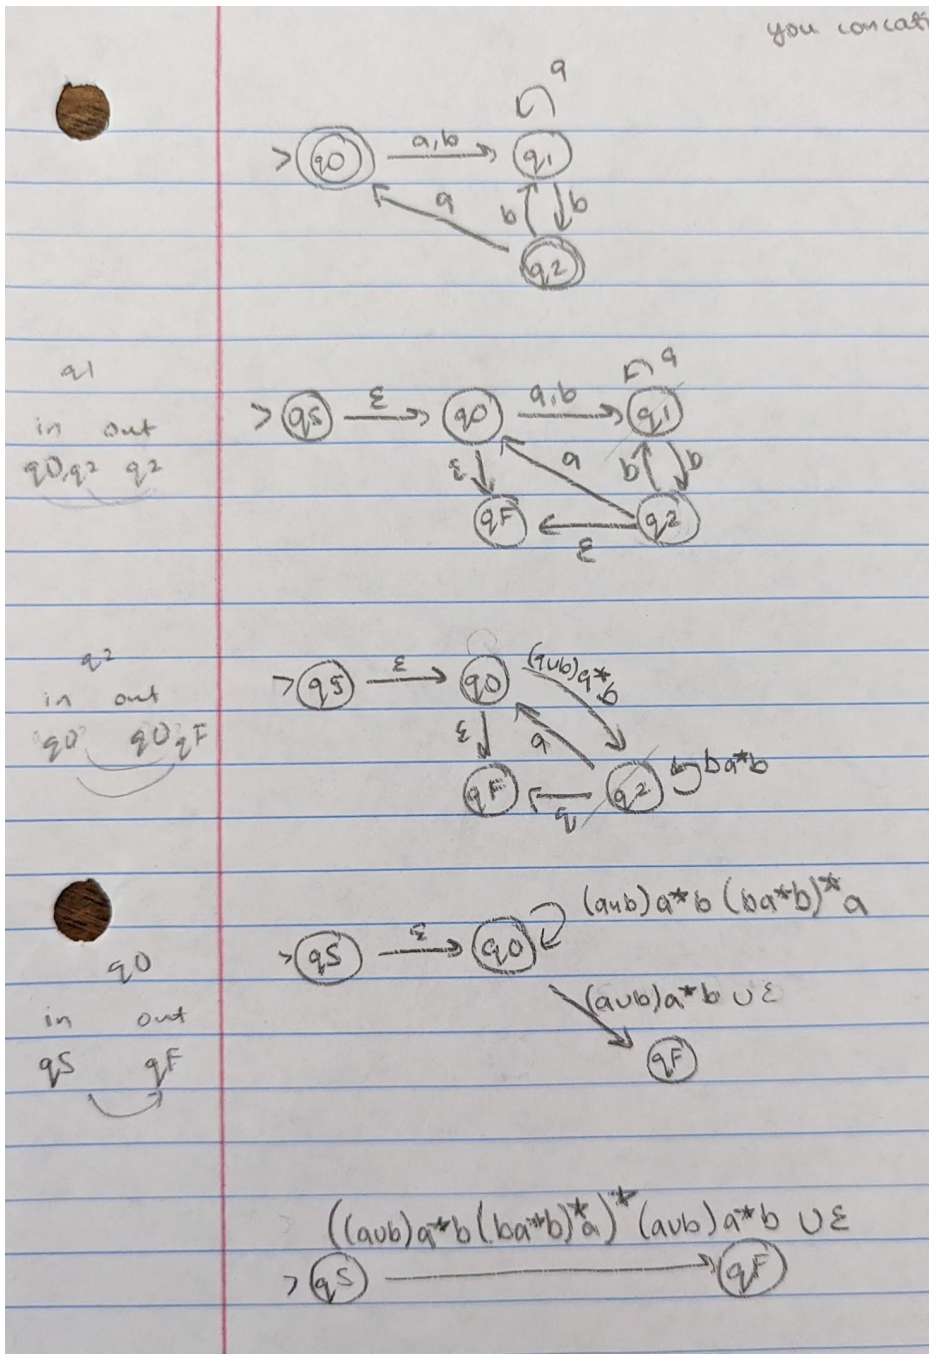 you concat
a
> q0 a,b q1
a b b
q2
q1
in out
q0,q2 q2
a
> qS ε q0 a,b q1
ε a b b
qF ε q2
q2
in out
q0 q0 qF
> qS ε q0 (a∪b)a*b
ε a
qF a q2 ba*b
q0
in out
qS qF
> qS ε q0 (a∪b)a*b(ba*b)*a
(a∪b)a*b ∪ ε
qF
((a∪b)a*b(ba*b)*a)*(a∪b)a*b ∪ ε
> qS qF